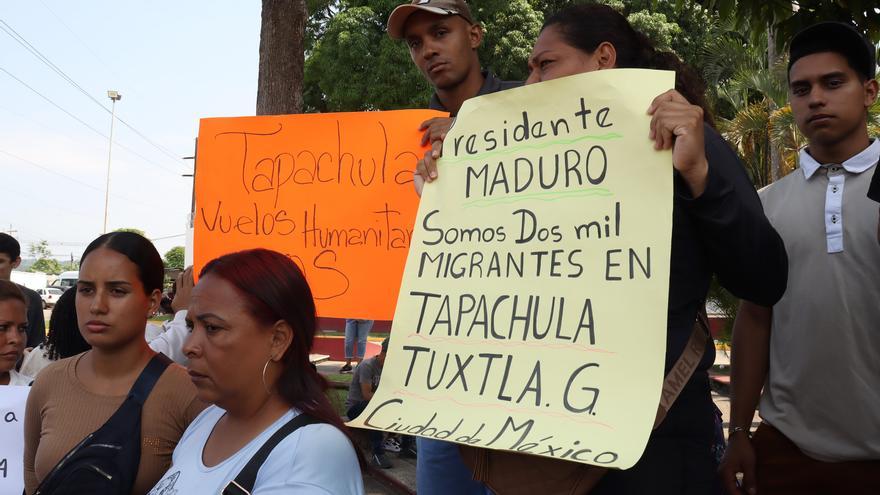 Tapachula
Vuelos Humanitari
os
Presidente
MADURO
Somos Dos mil
MIGRANTES EN
TAPACHULA
TUXTLA. G.
Ciudad de México
A